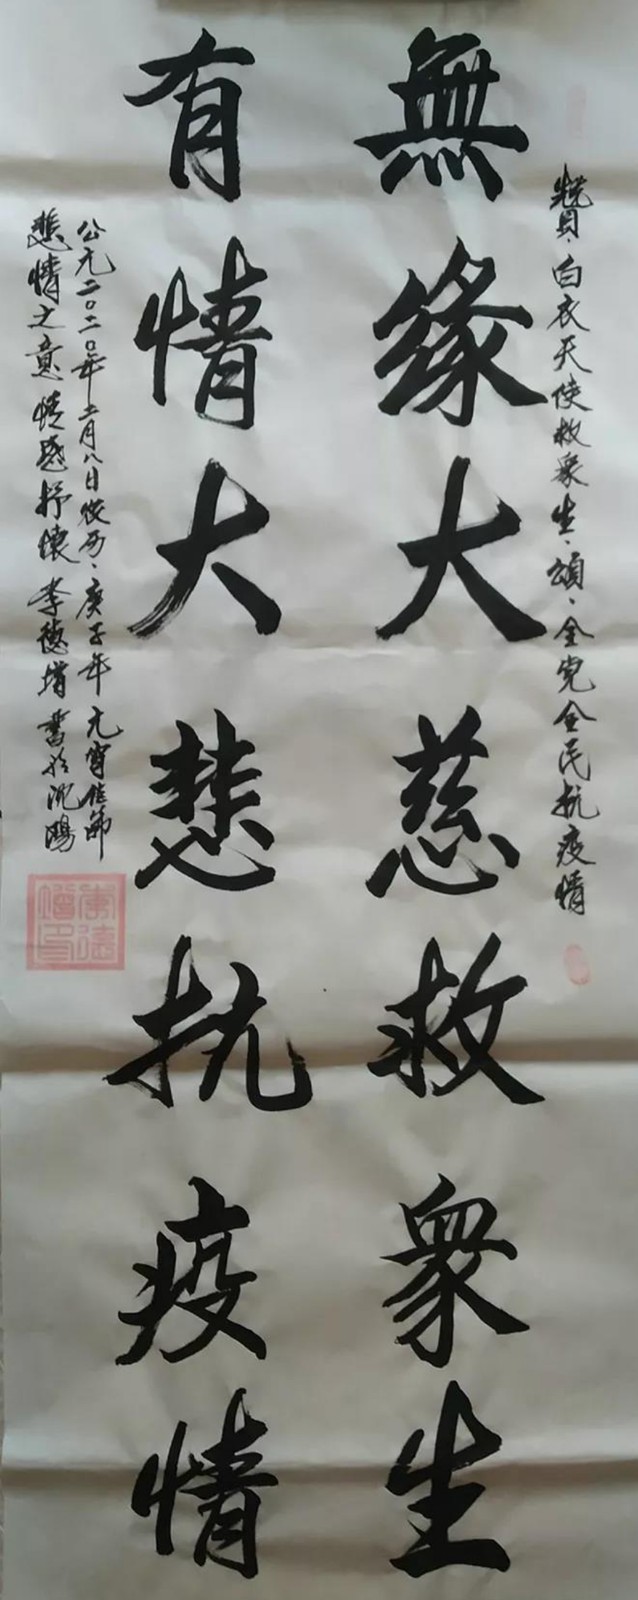 贊·白衣天使救衆生·頌·全党全民抗疫情
無缘大慈救衆生
有情大悲抗疫情
公元二〇二〇年二月八日农历·庚子年 元宵佳節
悲情之意 情感抒懷 李德增 書於沈陽